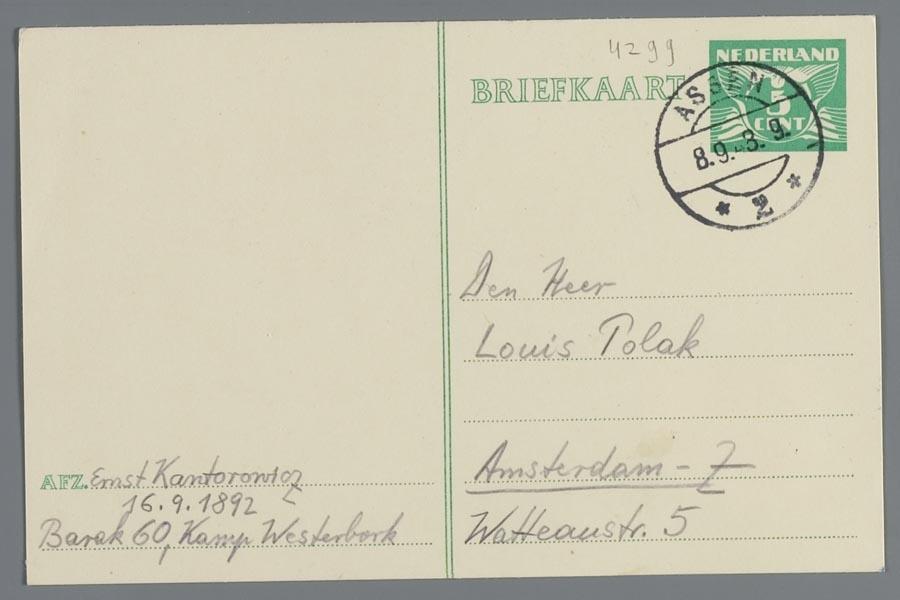 4299
NEDERLAND
BRIEFKAART
5
CENT
ASSEN
8.9.-3.9.
2
Den Heer
Louis Polak
Amsterdam - Z
Watteaustr. 5
AFZ. Ernst Kantorowicz
16.9.1892
Barak 60, Kamp Westerbork